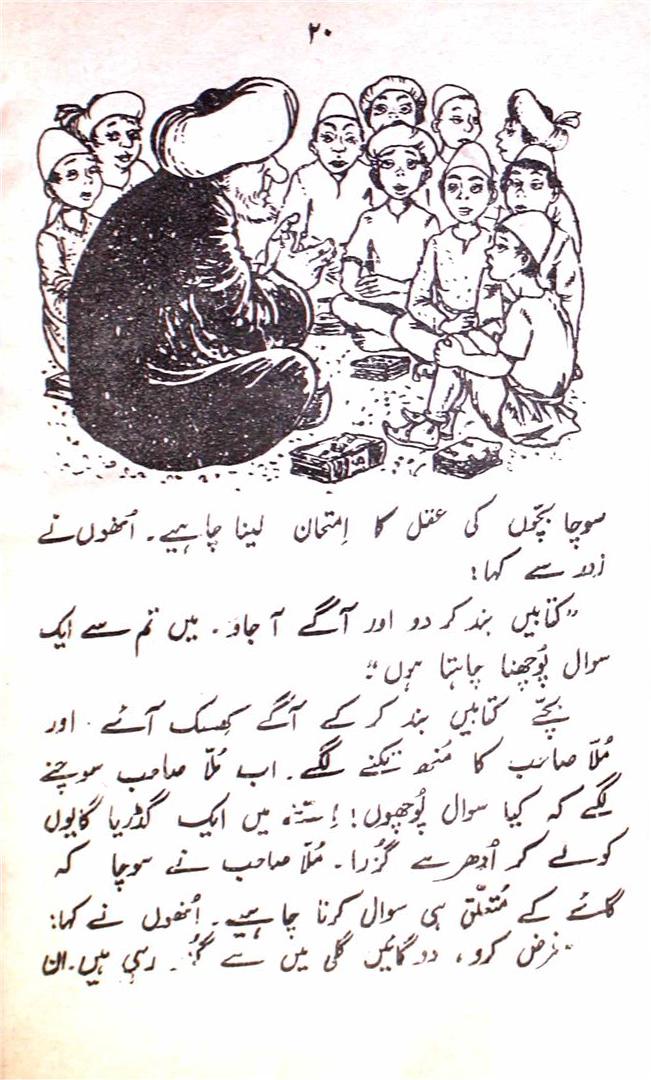 ۲۰
سوچا بچّوں کی عقل کا اِمتحان لینا چاہیے۔ اُنھوں نے
زور سے کہا:
”کتابیں بند کر دو اور آگے آ جاؤ۔ میں تم سے ایک
سوال پُوچھنا چاہتا ہوں“
بچّے کتابیں بند کر کے آگے کھِسک آئے اور
مُلّا صاحب کا مُنھ تکنے لگے۔ اب مُلّا صاحب سوچنے
لگے کہ کیا سوال پُوچھوں! اِتنے میں ایک گڈریا گایوں
کو لے کر اُدھر سے گُزرا۔ مُلّا صاحب نے سوچا کہ
گائے کے مُتعلّق ہی سوال کرنا چاہیے۔ اُنھوں نے کہا:
”فرض کرو، دو گائیں گلی میں سے گُزر رہی ہیں۔ ان